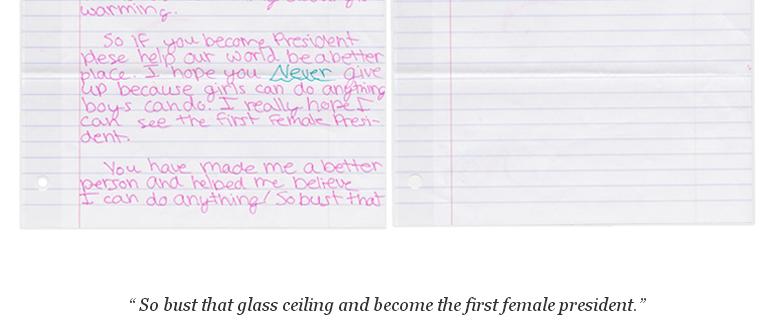 warming.
So if you become President
plese help our world be a better
place. I hope you Never give
up because girls can do anything
boys can do! I really hope I
can see the first female Presi-
dent.
You have made me a better
person and helped me believe
I can do anything! So bust that
“ So bust that glass ceiling and become the first female president.”